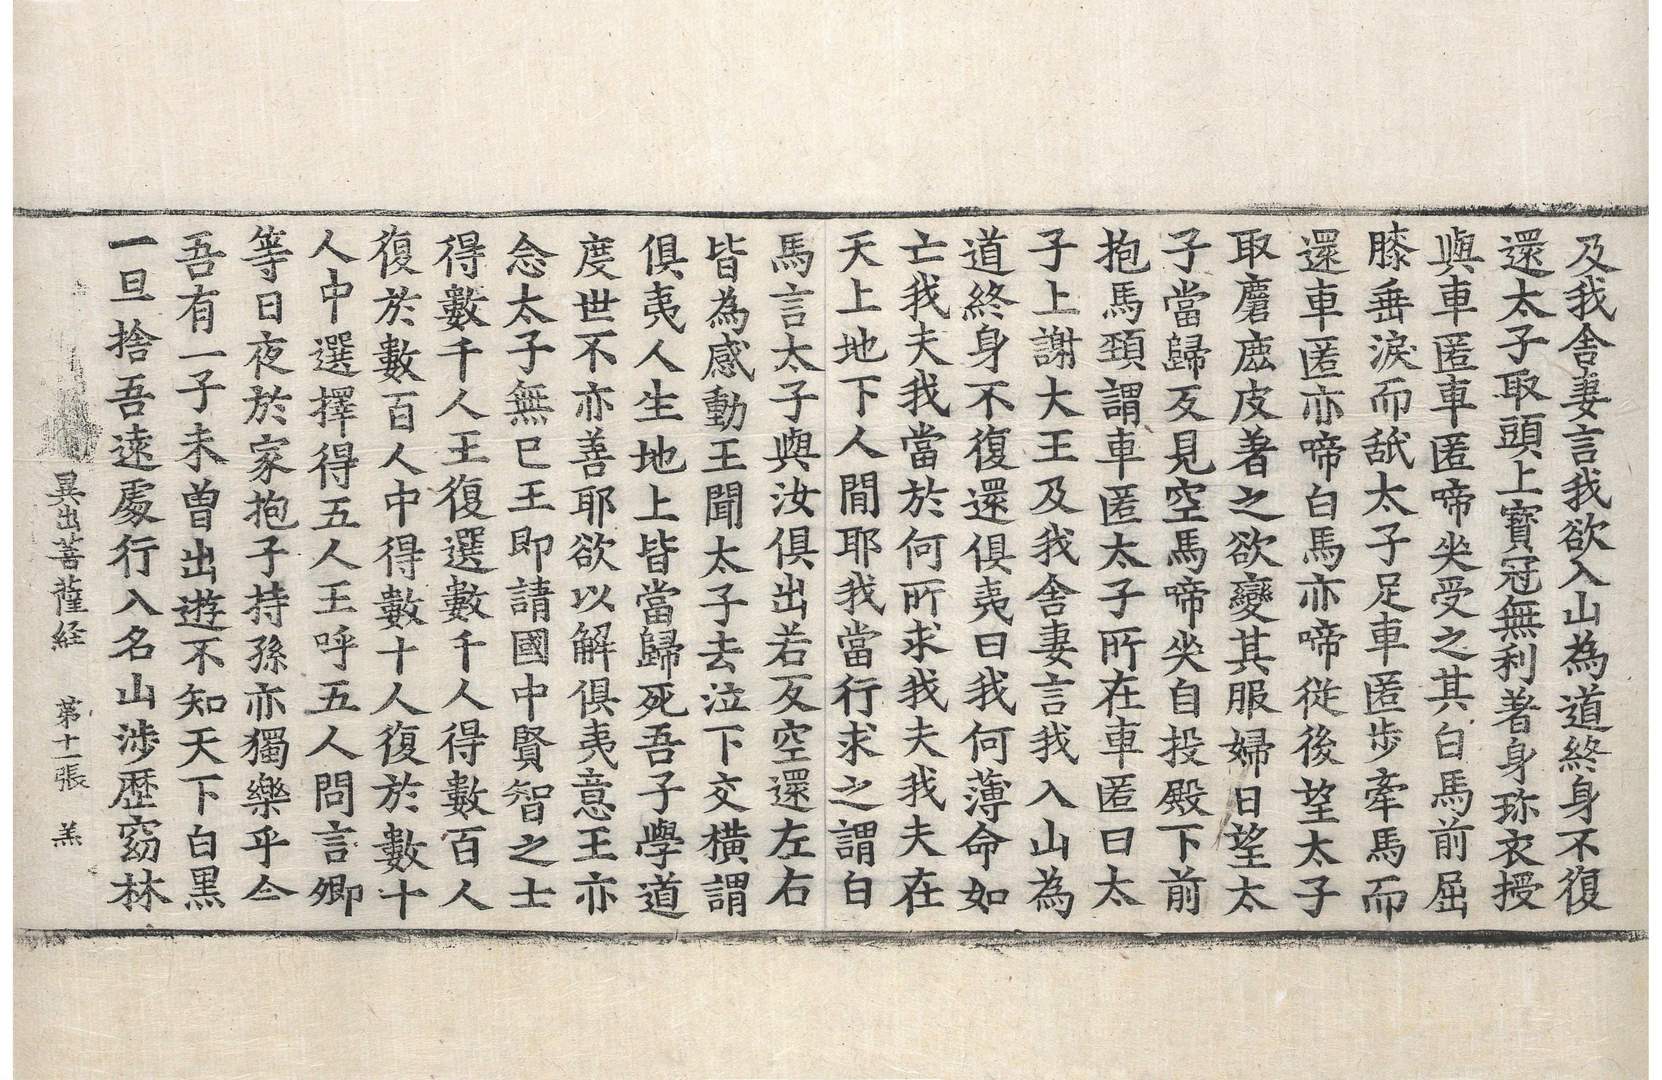 及我舍妻言我欲入山為道終身不復
還太子取頭上寶冠無利著身珎衣授
與車匿車匿啼㘴受之其白馬前屈
膝垂淚而舐太子足車匿步牽馬而
還車匿亦啼白馬亦啼啼従後望太子
取麿麃皮著之欲變其服婦日望太
子當歸反見空馬啼㘴自投殿下前
抱馬頚謂車匿太子所在車匿曰太
子上謝大王及我舍妻言我入山為
道終身不復還俱夷曰我何薄命如
亡我夫我當於何所求我夫我夫在
天上地下人間耶我當行求之謂白
馬言太子與汝俱出若反空還左右
皆為感動王聞太子去泣下交橫謂
俱夷人生地上皆當歸死吾子學道
度世不亦善耶欲以解俱夷意王亦
念太子無已王即請國中賢智之士
得數千人王復選數千人得數百人
復於數百人中得數十人復於數十
人中選擇得五人王呼五人問言卿
等日夜於家抱子持孫亦獨樂乎今
吾有一子未曾出遊不知天下白黑
一旦捨吾逺處行入名山渉歴窈林
異出菩薩経　第十一張　羔